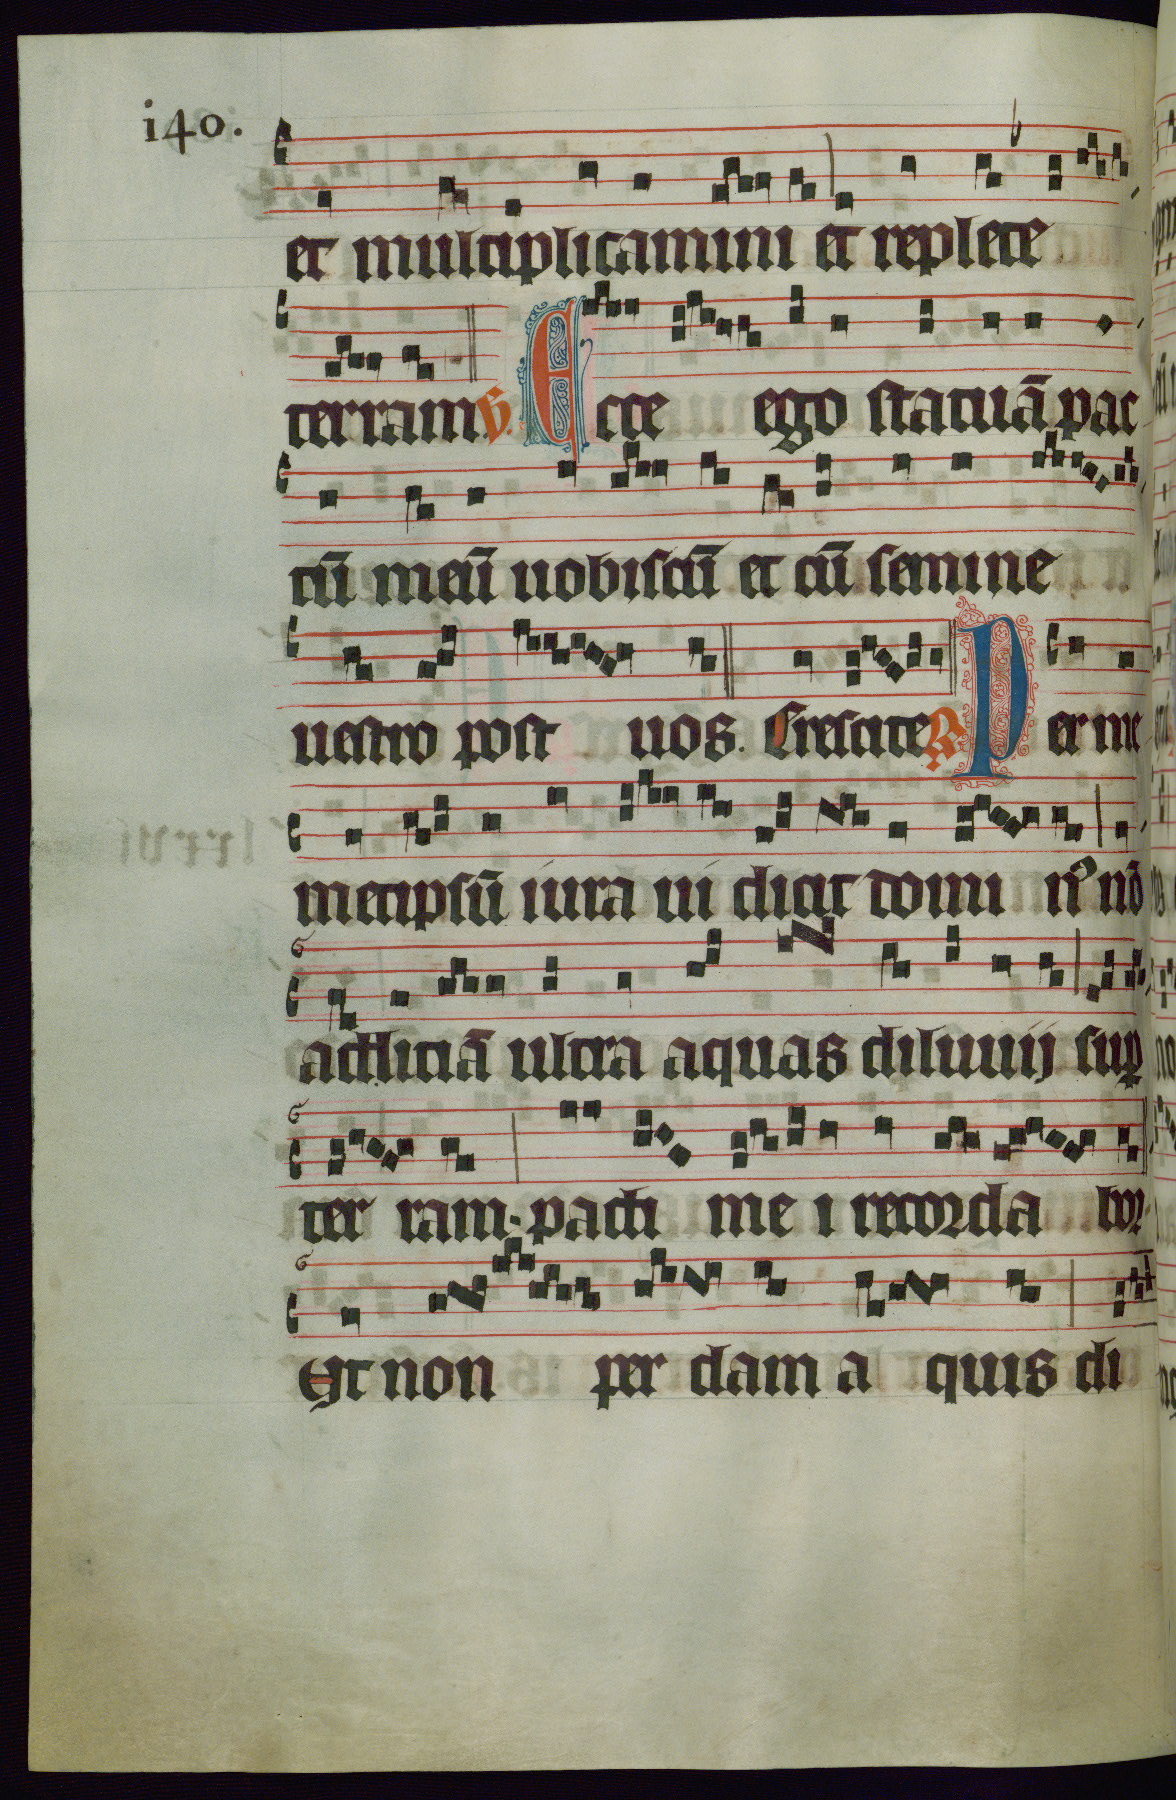 i40.
et multiplicamini et replete
terram V. Ecce ego statuā pac
tū meū uobiscū et cū semine
uestro post uos. Crescite R Per me
metipsū iura ui dicit domi nꝰ nō
adiiciā ultra aquas diluuij suꝑ
ter ram. pacti me i recorda bor
Et non per dam a quis di